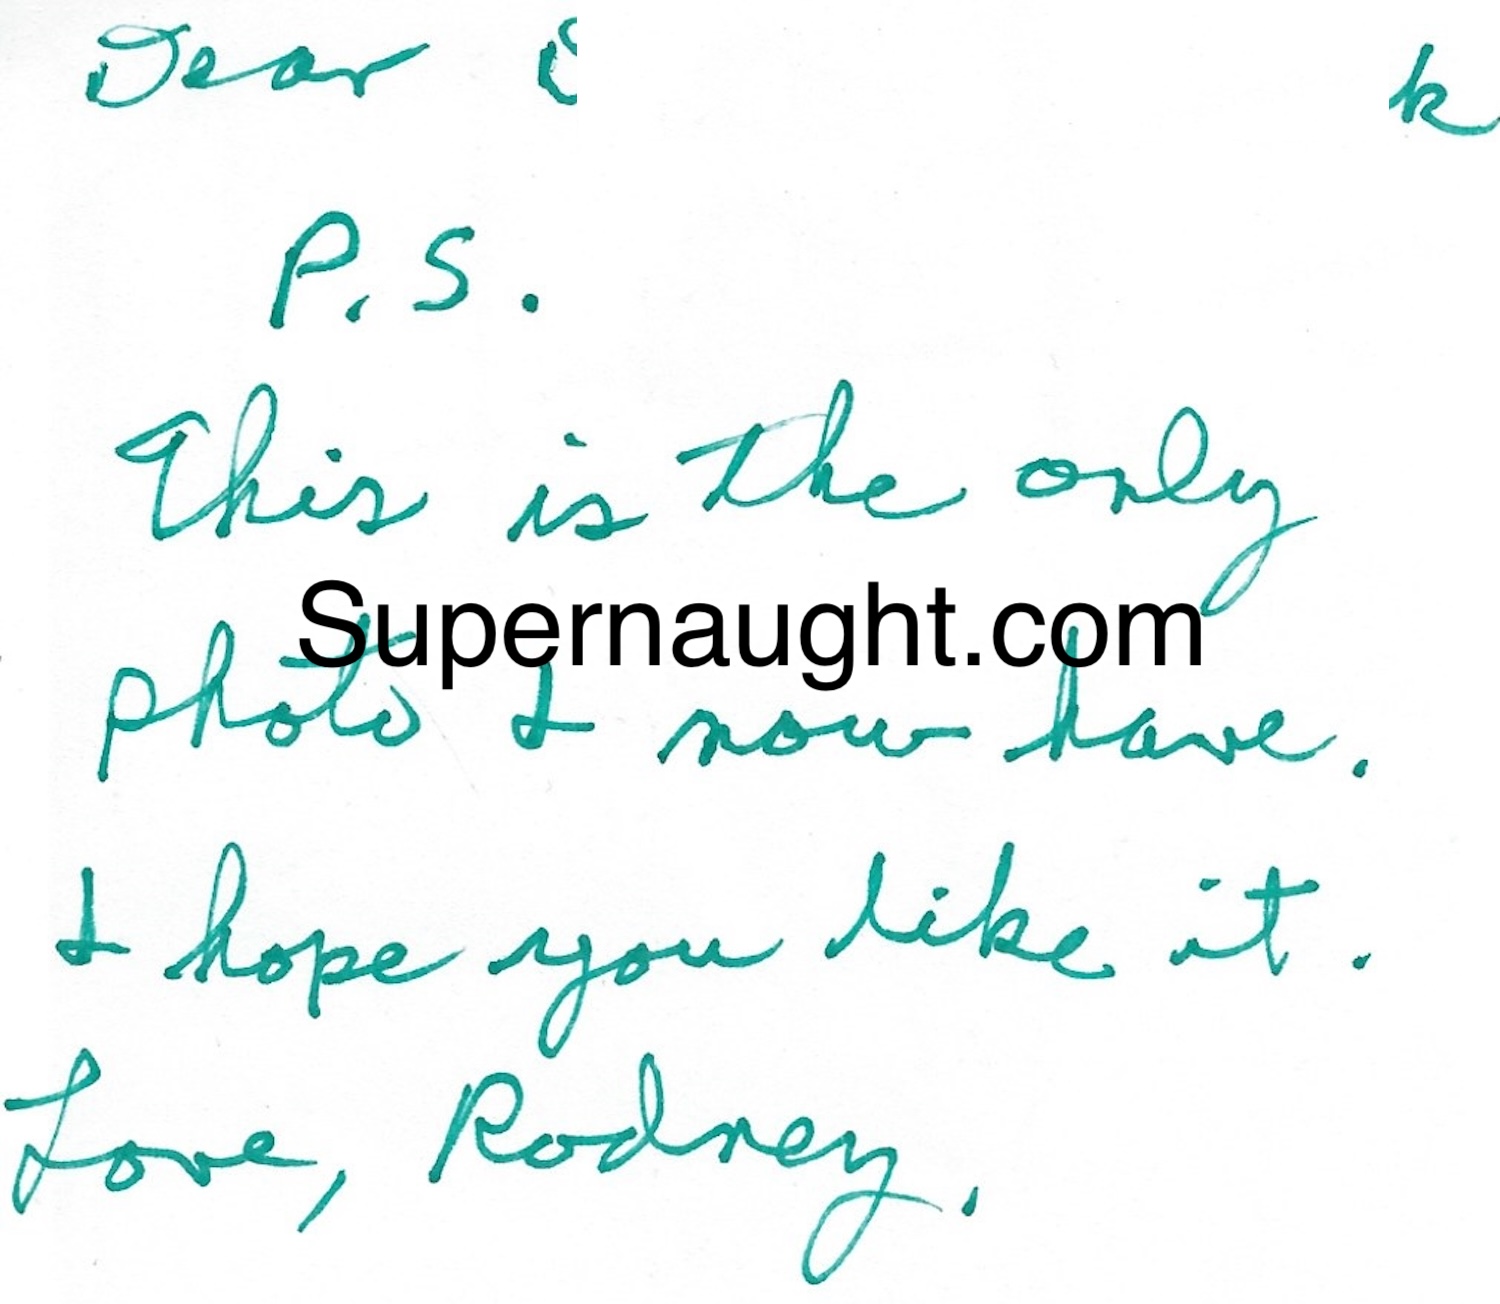 Dear
P.S.
This is the only
Supernaught.com
photo I now have.
I hope you like it.
Love, Rodney.